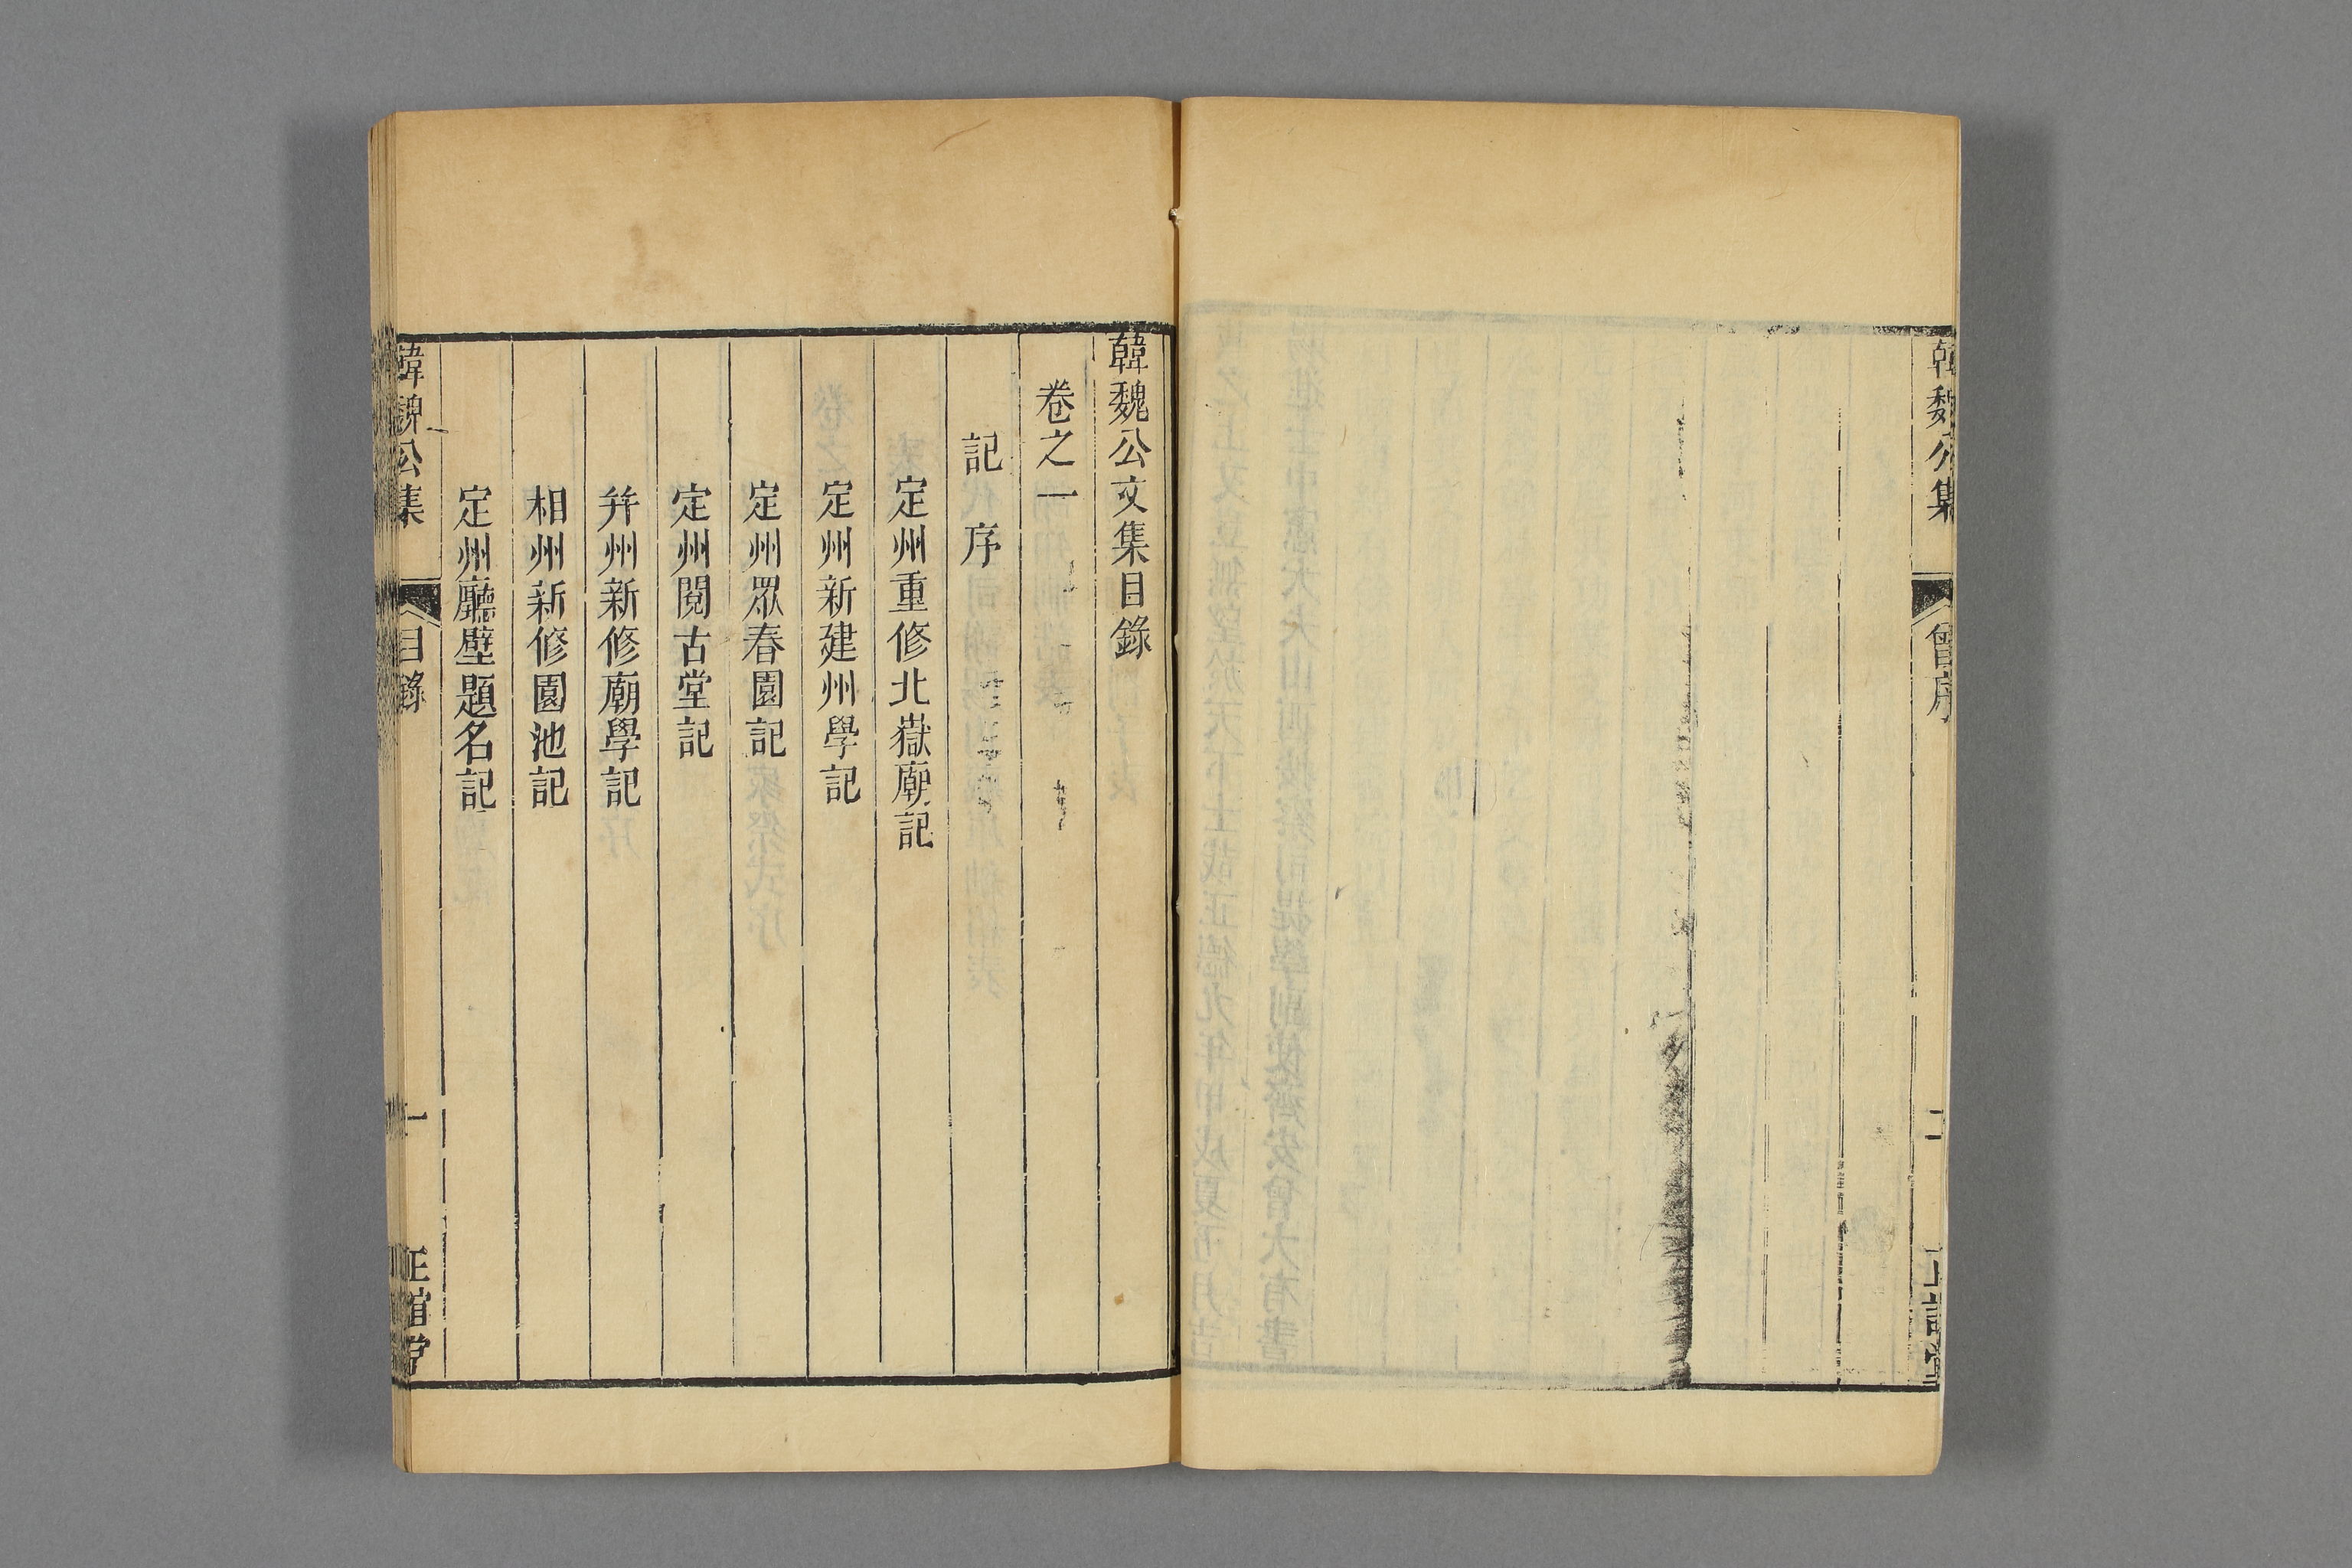 韓魏公集
曾序
二
正誼堂
韓魏公文集目錄
卷之一
記　序
定州重修北嶽廟記
定州新建州學記
定州眾春園記
定州閱古堂記
并州新修廟學記
相州新修園池記
定州廳壁題名記
韓魏公集
目錄
一
正誼堂